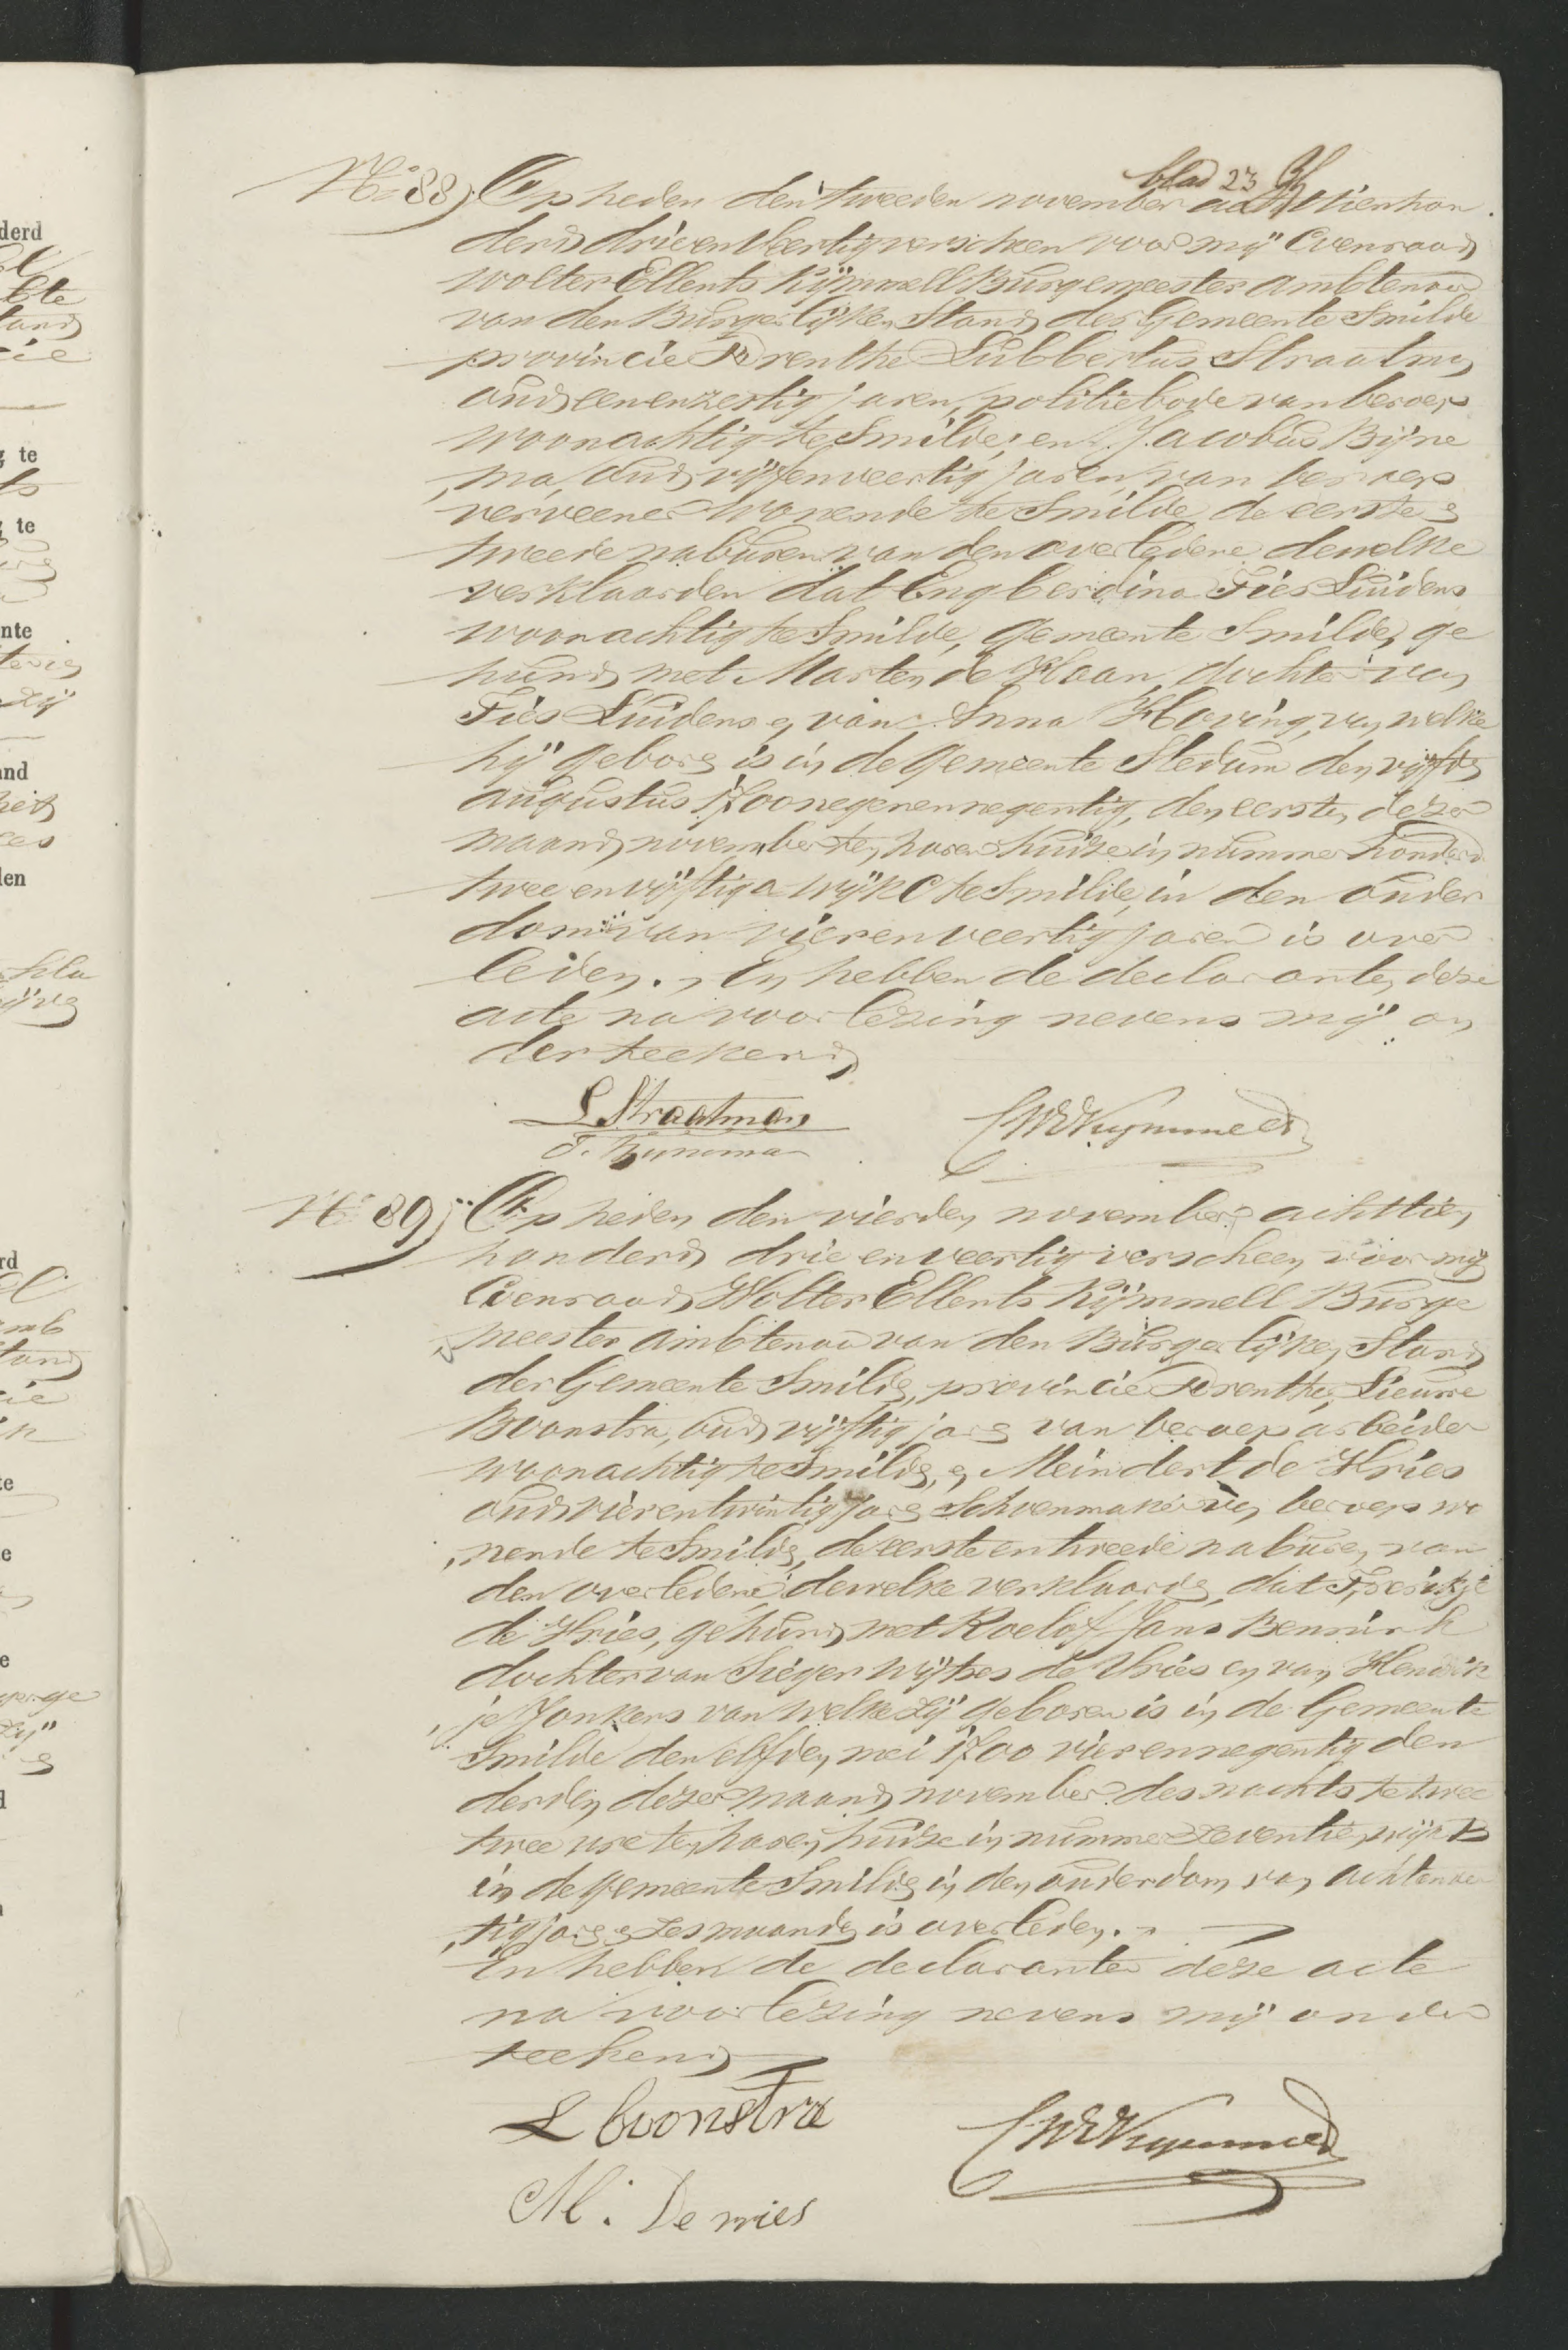 blad 23
No 88) Op heden den tweeden november achttienhon
derd drieenveertig verscheen voor mij Coenraad
Wolter Ellents Kijmmell Burgemeester Ambtenaar
van den Burgerlijken Stand der Gemeente Smilde
provincie Drenthe Lubbertus Straatman
oud eenenzestig jaren, politiebode van beroep
woonachtig te Smilde, en Jacobus Bijne
ma, oud vijfenveertig jaren van beroep
verveener wonende te Smilde de eerste en
tweede naburen van den overledene dewelke
verklaarden dat Engberdina Fies Luidens
woonachtig te Smilde, gemeente Smilde, ge
huwd met Marten de Haan, dochter van
Fies Luidens en van Anna Hoving, van welke
hij geboren is in de Gemeente Stedum den vijfden
augustus 1700negenennegentig, den eersten dezer
maand november ten haren huize in nummer honderd
tweeenvijftig a wijk C te Smilde, in den ouder
dom van vierenveertig jaren is over
leden. En hebben de declaranten deze
acte na voorlezing nevens mij on
derteekend
L Straatman
J. Bijnema
CWEKijmmell
No 89) Op heden den vierden november achttien
honderd drieenveertig verscheen voor mij
Coenraad Wolter Ellents Kijmmell Burge
meester Ambtenaar van den Burgerlijken Stand
der Gemeente Smilde, provincie Drenthe, Lieuwe
Boonstra, oud vijftig jaren van beroep arbeider
woonachtig te Smilde, en Meindert de Vries
oud vierentwintig jaren Schoenmaker van beroep wo
nende te Smilde, de eerste en tweede naburen van
den overledene dewelke verklaarden dat Froukje
de Vries, gehuwd met Roelof Jans
dochter van Sieger Wijtses de Vries en van Hendrik
je Jonkers van welke zij geboren is in de Gemeente
Smilde den elfden mei 1700 vierennegentig den
derden dezer maand november des nachts te twee
twee ure ten haren huize in nummer zeventien wijk B
in de gemeente Smilde in den ouderdom van achtenveer
tig jaren en zes maanden is overleden.
En hebben de declaranten deze acte
na voorlezing nevens mij onder
teekend
L Boonstra
CWEKijmmell
M. De vries
derd
te
te
nte
and
den
rd
te
e
e